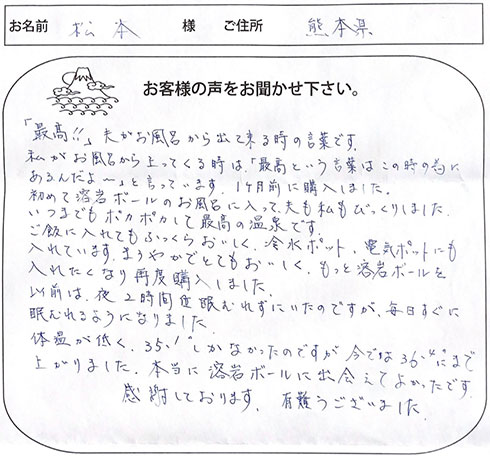 お名前 松本 様 ご住所 熊本県
お客様の声をお聞かせ下さい。
「最高!!」夫がお風呂から出て来る時の言葉です。
私がお風呂から上ってくる時は、「最高という言葉はこの時の為に
あるんだよ～」と言っています。1ヶ月前に購入しました。
初めて溶岩ボールのお風呂に入って、夫も私もびっくりしました。
いつまでもポカポカして最高の温泉です。
ご飯に入れてもふっくらおいしく、冷水ポット、電気ポットにも
入れています。まろやかでとてもおいしく、もっと溶岩ボールを
入れたくなり再度購入しました。
以前は、夜2時間位眠れずにいたのですが、毎日すぐに
眠むれるようになりました。
体温が低く、35.1°しかなかったのですが今では36.4°にまで
上がりました。本当に溶岩ボールに出会えてよかったです。
感謝しております。有難うございました。